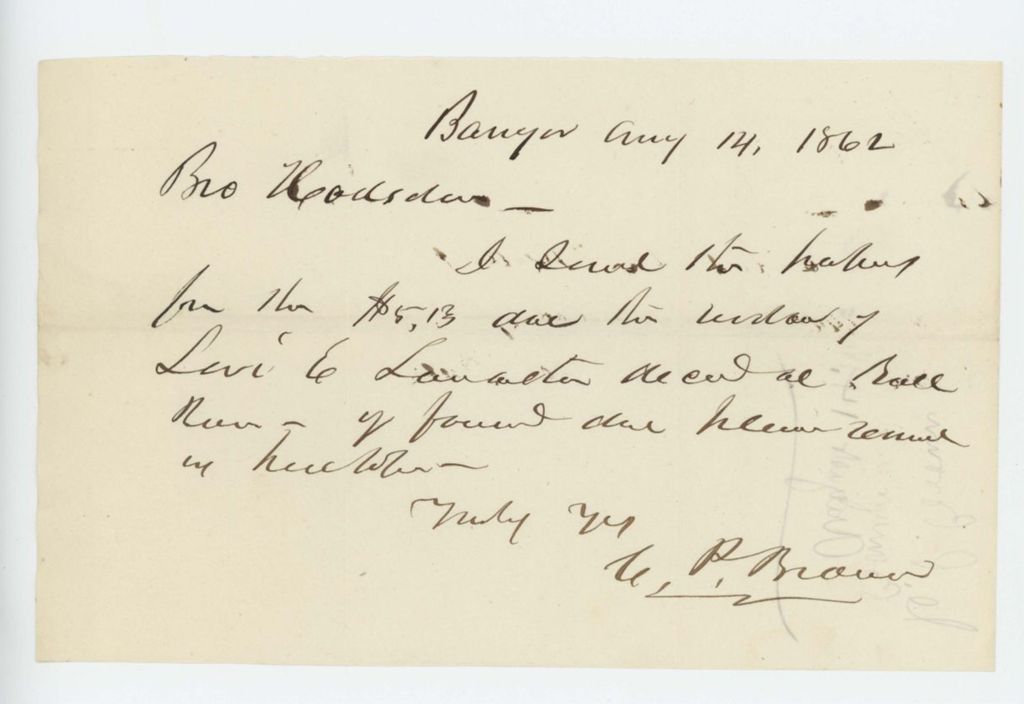 Bangor Aug 14, 1862
Bro Hodsdon —
I send the papers
for the $5,13 due the widow of
Levi E Lancaster decd at Bull
Run — if found due please remit
in
Truly Yrs
C. P. Brown